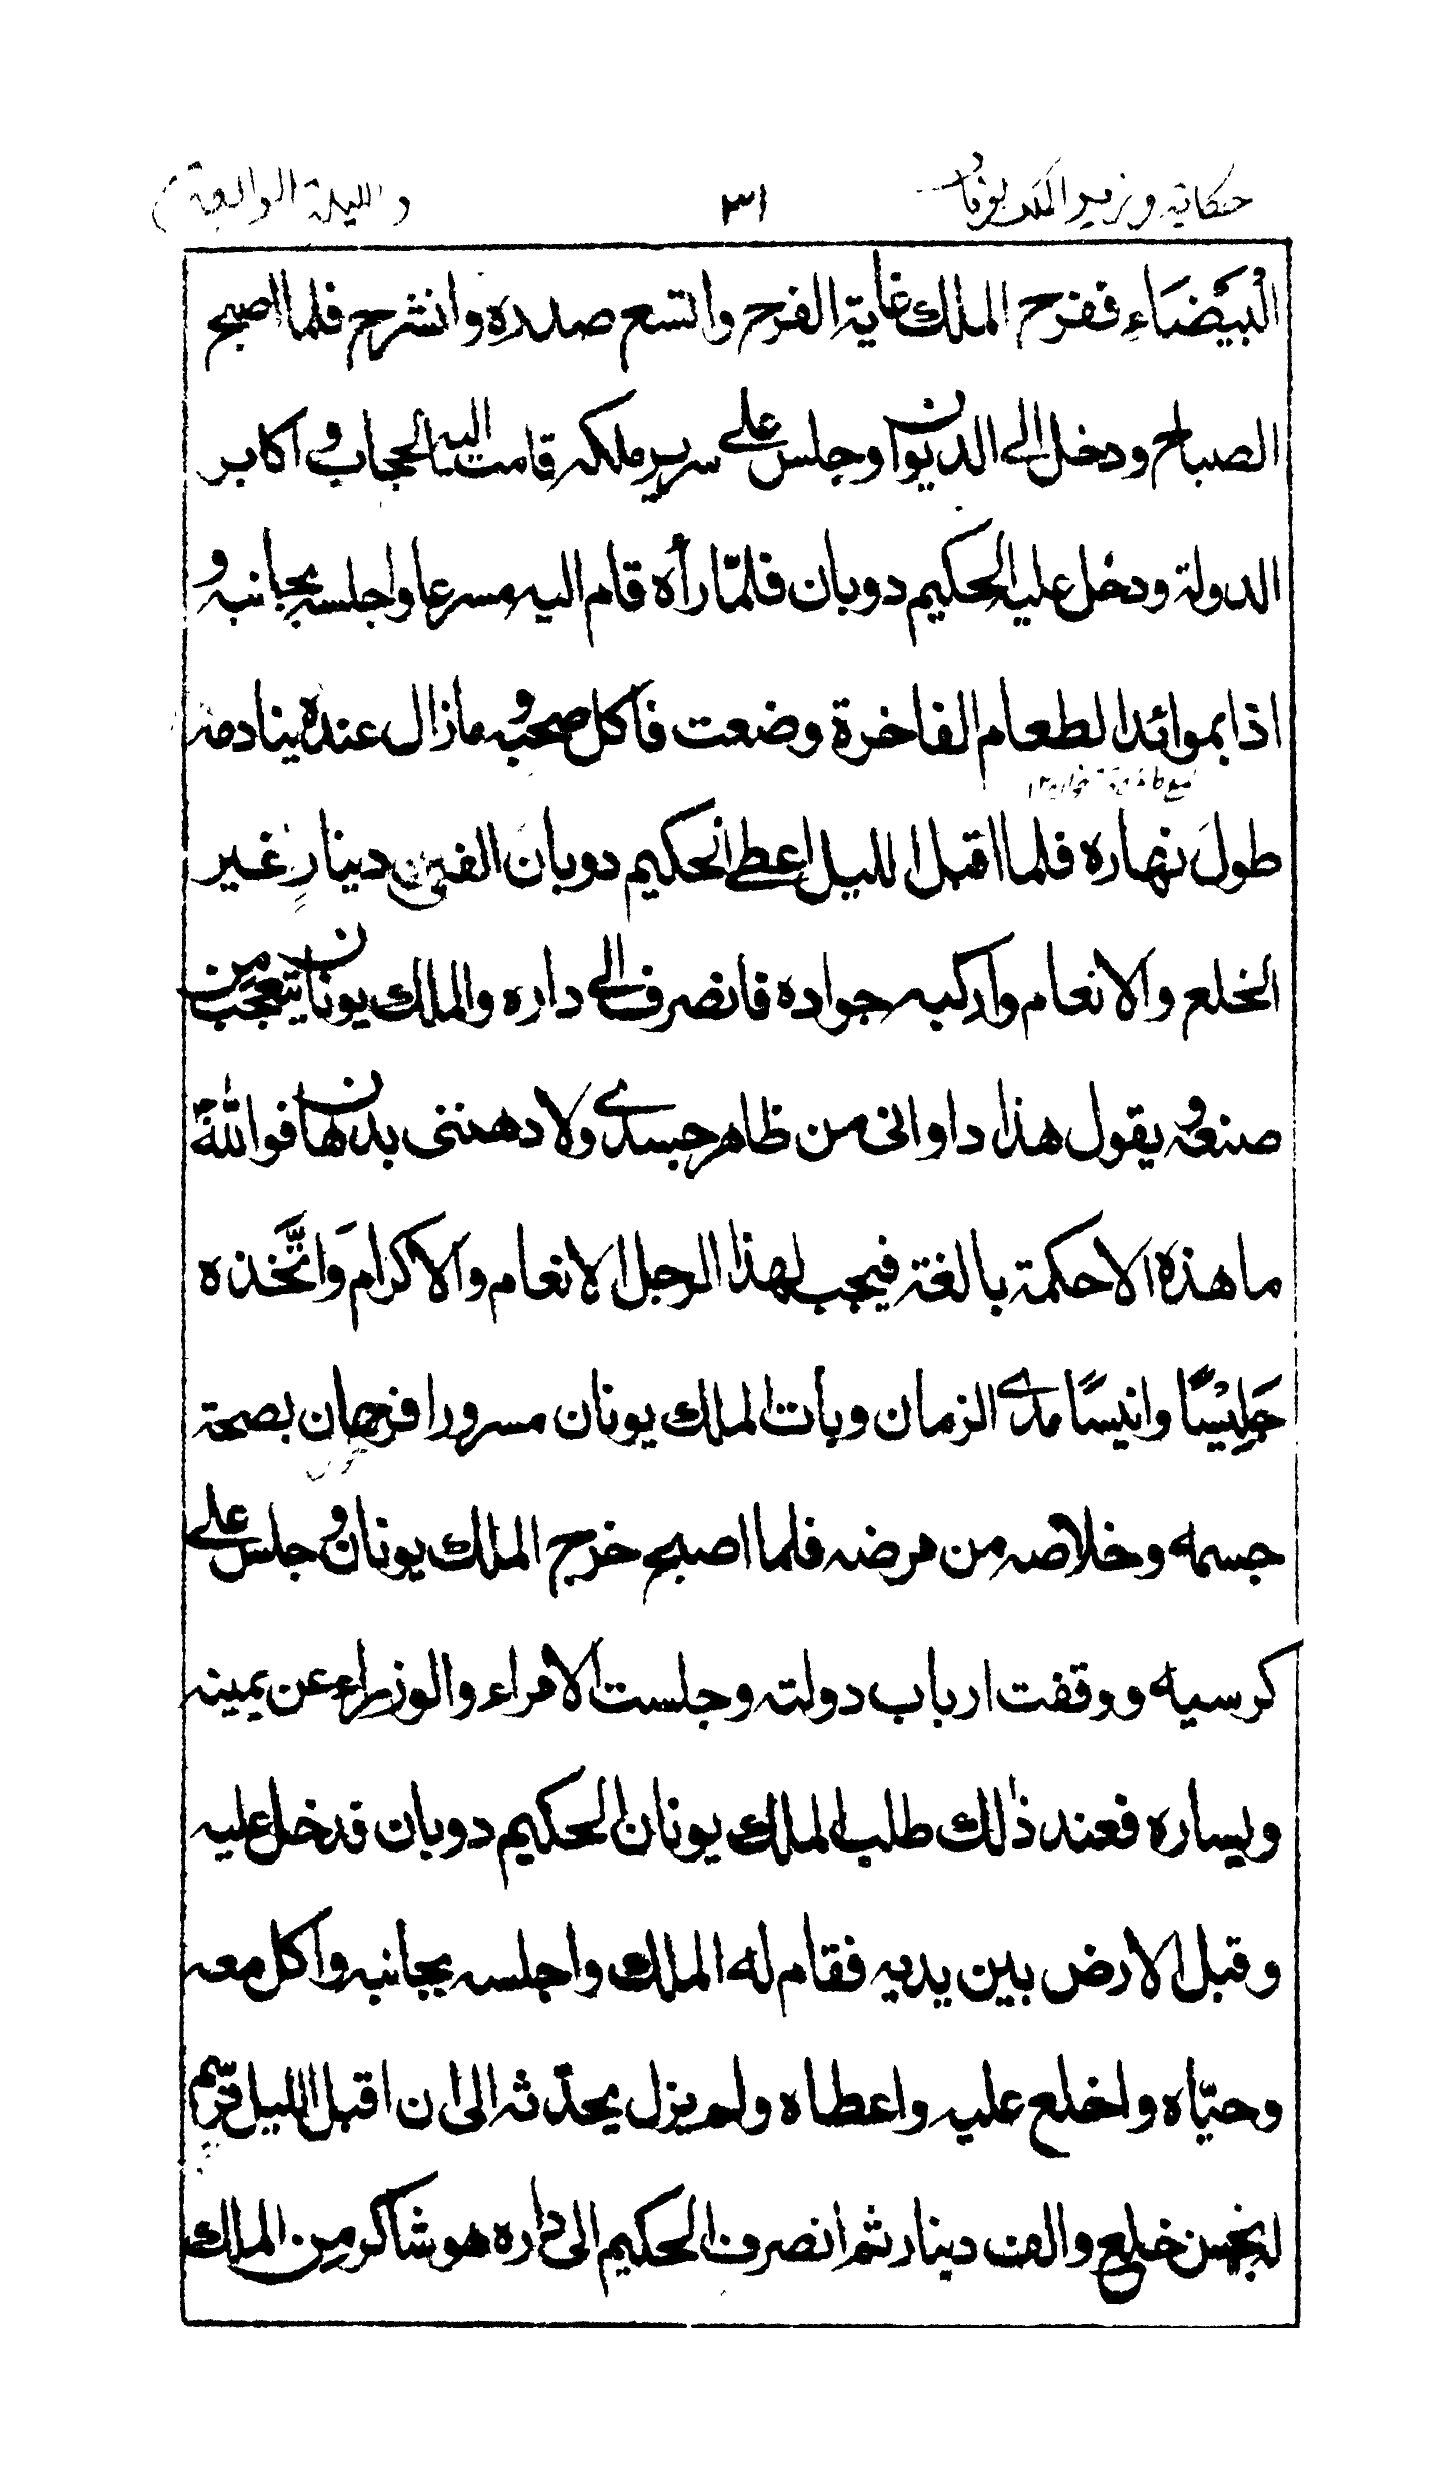 حكاية وزير الملك يونان ٣١ والليلة الرابعة
البَيْضَاءِ ففرح الملك غاية الفرح واتسع صدره وانشرح فلما اصبح
الصباح ودخل الى الديوان وجلس على سرير ملكه قامت اليه الحجاب و اكابر
الدولة ودخل عليه الحكيم دوبان فلمّا رأه قام اليه مسرعا واجلسه بجانبه و
اذا بموائد الطعام الفاخرة وضعت فاكل صحبه و مازال عنده ينادمه
طولَ نهاره فلما اقبل الليل اعطى الحكيم دوبان الفين دينار غير
الخلع والانعام واركبه جواده فانصرف الى داره والملك يونان يتعجب من
صنعه و يقول هذا داوانى من ظاهر جسدى ولا دهننى بدهان فوالله
ما هذه الا حكمة بالغة فيجب لهذا الرجل الانعام والاكرامَ وَاتَّخذه
جَلِيْسًا وانيسًا مدى الزمان وبات الملك يونان مسرورا فرحان بصحة
جسمه وخلاصه من مرضه فلما اصبح خرج الملك يونان و جلس على
كرسيه ووقفت ارباب دولته وجلست الامراء والوزراء عن يمينه
ويساره فعند ذٰلك طلب الملك يونان الحكيم دوبان فدخل عليه
وقبل الارض بين يديه فقام له الملك واجلسه بجانبه واكل معه
وحيّاه واخلع عليه واعطاه ولم يزل يحدّثه الى ان اقبل الليل فرسم
له بخمس خلع والف دينار ثم انصرف الحكيم الى داره هو شاكر من الملك